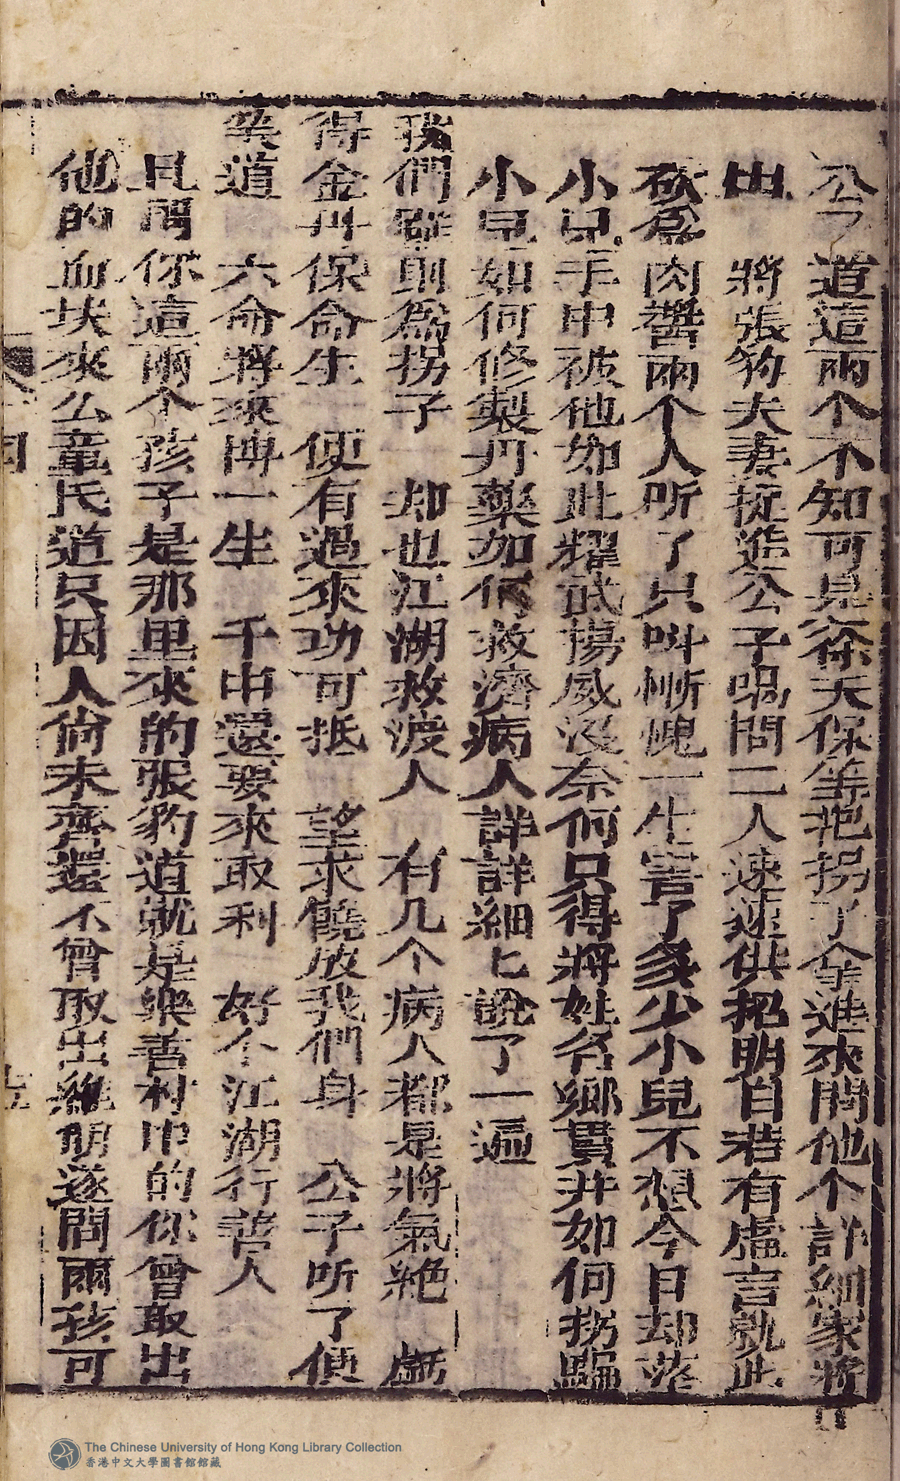 公子道這兩个不知可是徐天保等把拐子拿進來問他个詳細家將
出　將張豹夫妻捉進公子喝問二人速速供招明白若有虛言就此
砍為肉醬兩个人听了只叫慚愧一生害了多少小兒不想今日却落
小兒手中被他如此耀武揚威沒奈何只得將姓名鄉貫并如何拐騙
小兒如何修製丹藥如何救濟病人詳詳細匕說了一遍
我們雖則為拐子　却也江湖救渡人　有几个病人都是將氣絕　虧
得金丹保命生　便有過來功可抵　望求饒放我們身　公子听了便
笑道　六命將來博一生　千中還要來取利　好个江湖行善人
且問你這兩个孩子是那里來的張豹道就是樂善村中的你曾取出
他的血塊來么童氏道只因人尚未齊還不曾取出維朋遂問兩孩可
The Chinese University of Hong Kong Library Collection
香港中文大學圖書館館藏